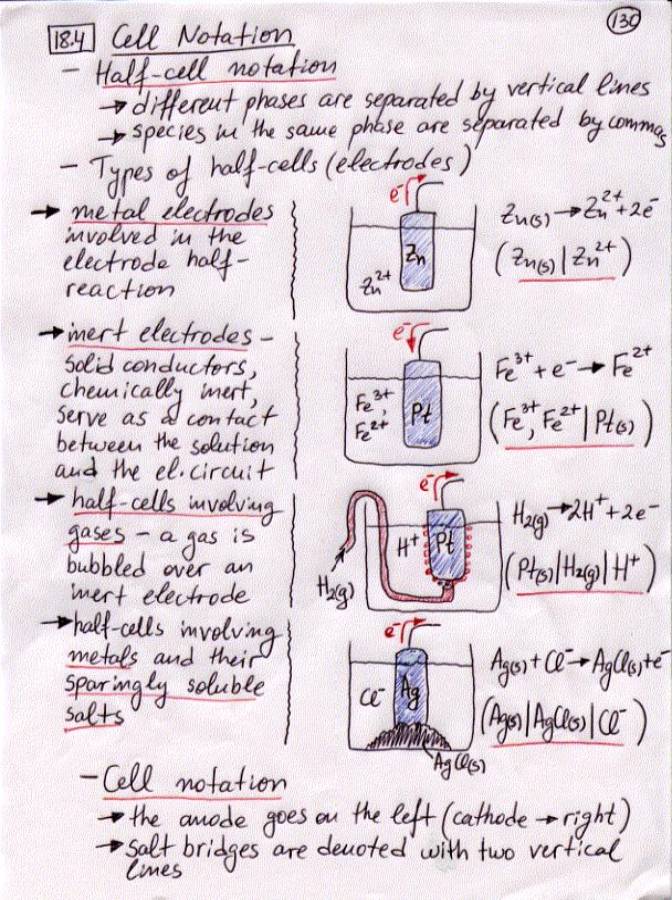 130
18.4 Cell Notation
- Half-cell notation
→ different phases are separated by vertical lines
→ species in the same phase are separated by commas
- Types of half-cells (electrodes)
→ metal electrodes
involved in the
electrode half-
reaction
e⁻
Zn
Zn²⁺
Zn(s) → Zn²⁺ + 2e⁻
(Zn(s) | Zn²⁺)
→ inert electrodes -
solid conductors,
chemically inert,
serve as a contact
between the solution
and the el. circuit
e⁻
Fe³⁺,
Fe²⁺
Pt
Fe³⁺ + e⁻ → Fe²⁺
(Fe³⁺, Fe²⁺ | Pt(s))
→ half-cells involving
gases - a gas is
bubbled over an
inert electrode
e⁻
H⁺
Pt
H₂(g)
H₂(g) → 2H⁺ + 2e⁻
(Pt(s) | H₂(g) | H⁺)
→ half-cells involving
metals and their
sparingly soluble
salts
e⁻
Cl⁻
Ag
AgCl(s)
Ag(s) + Cl⁻ → AgCl(s) + e⁻
(Ag(s) | AgCl(s) | Cl⁻)
- Cell notation
→ the anode goes on the left (cathode → right)
→ Salt bridges are denoted with two vertical
lines